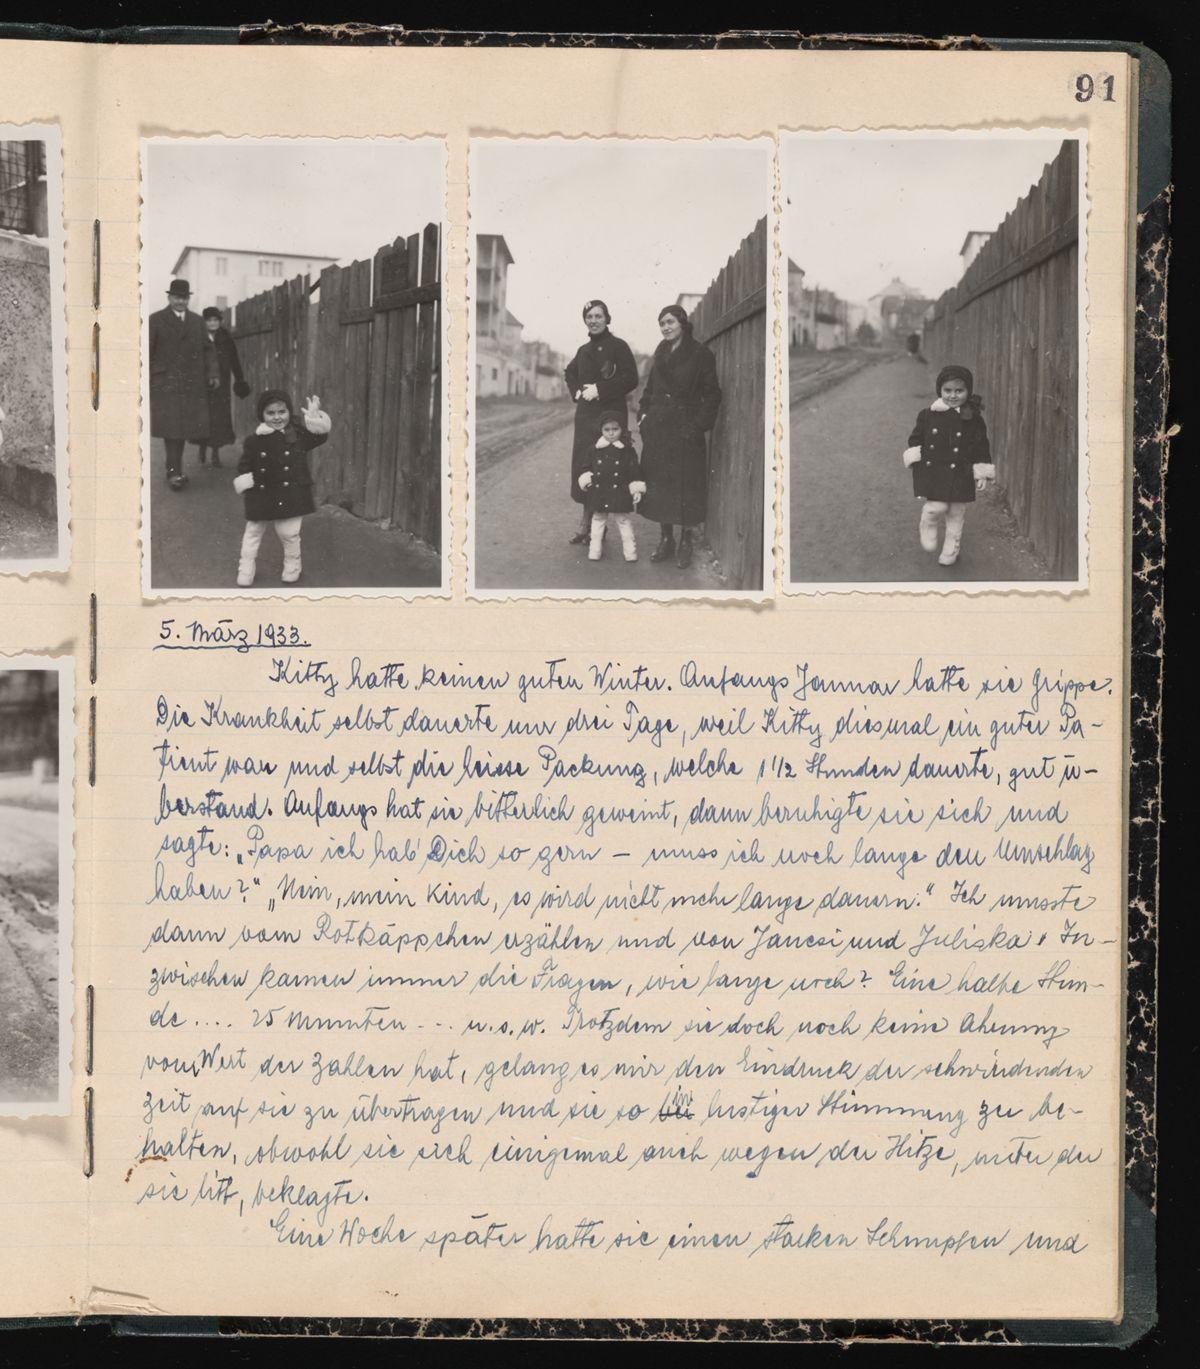 91
5. März 1933.
Kitty hatte keinen guten Winter. Anfangs Januar hatte sie Grippe.
Die Krankheit selbst dauerte nur drei Tage, weil Kitty diesmal ein guter Pa-
tient war und selbst die heisse Packung, welche 1 1/2 Stunden dauerte, gut ü-
berstand. Anfangs hat sie bitterlich geweint, dann beruhigte sie sich und
sagte: „Papa ich hab' Dich so gern – muss ich noch lange den Umschlag
haben?" „Nein, mein Kind, es wird nicht mehr lange dauern." Ich musste
dann vom Rotkäppchen erzählen und von Jancsi und Juliska. In-
zwischen kamen immer die Fragen, wie lange noch? Eine halbe Stun-
de .... 25 Minuten ... u.s.w. Trotzdem sie doch noch keine Ahnung
vom Wert der Zahlen hat, gelang es mir den Eindruck der schwindenden
Zeit auf sie zu übertragen und sie so in lustiger Stimmung zu be-
halten, obwohl sie sich einigemal auch wegen der Hitze, unter der
sie litt, beklagte.
Eine Woche später hatte sie einen starken Schnupfen und